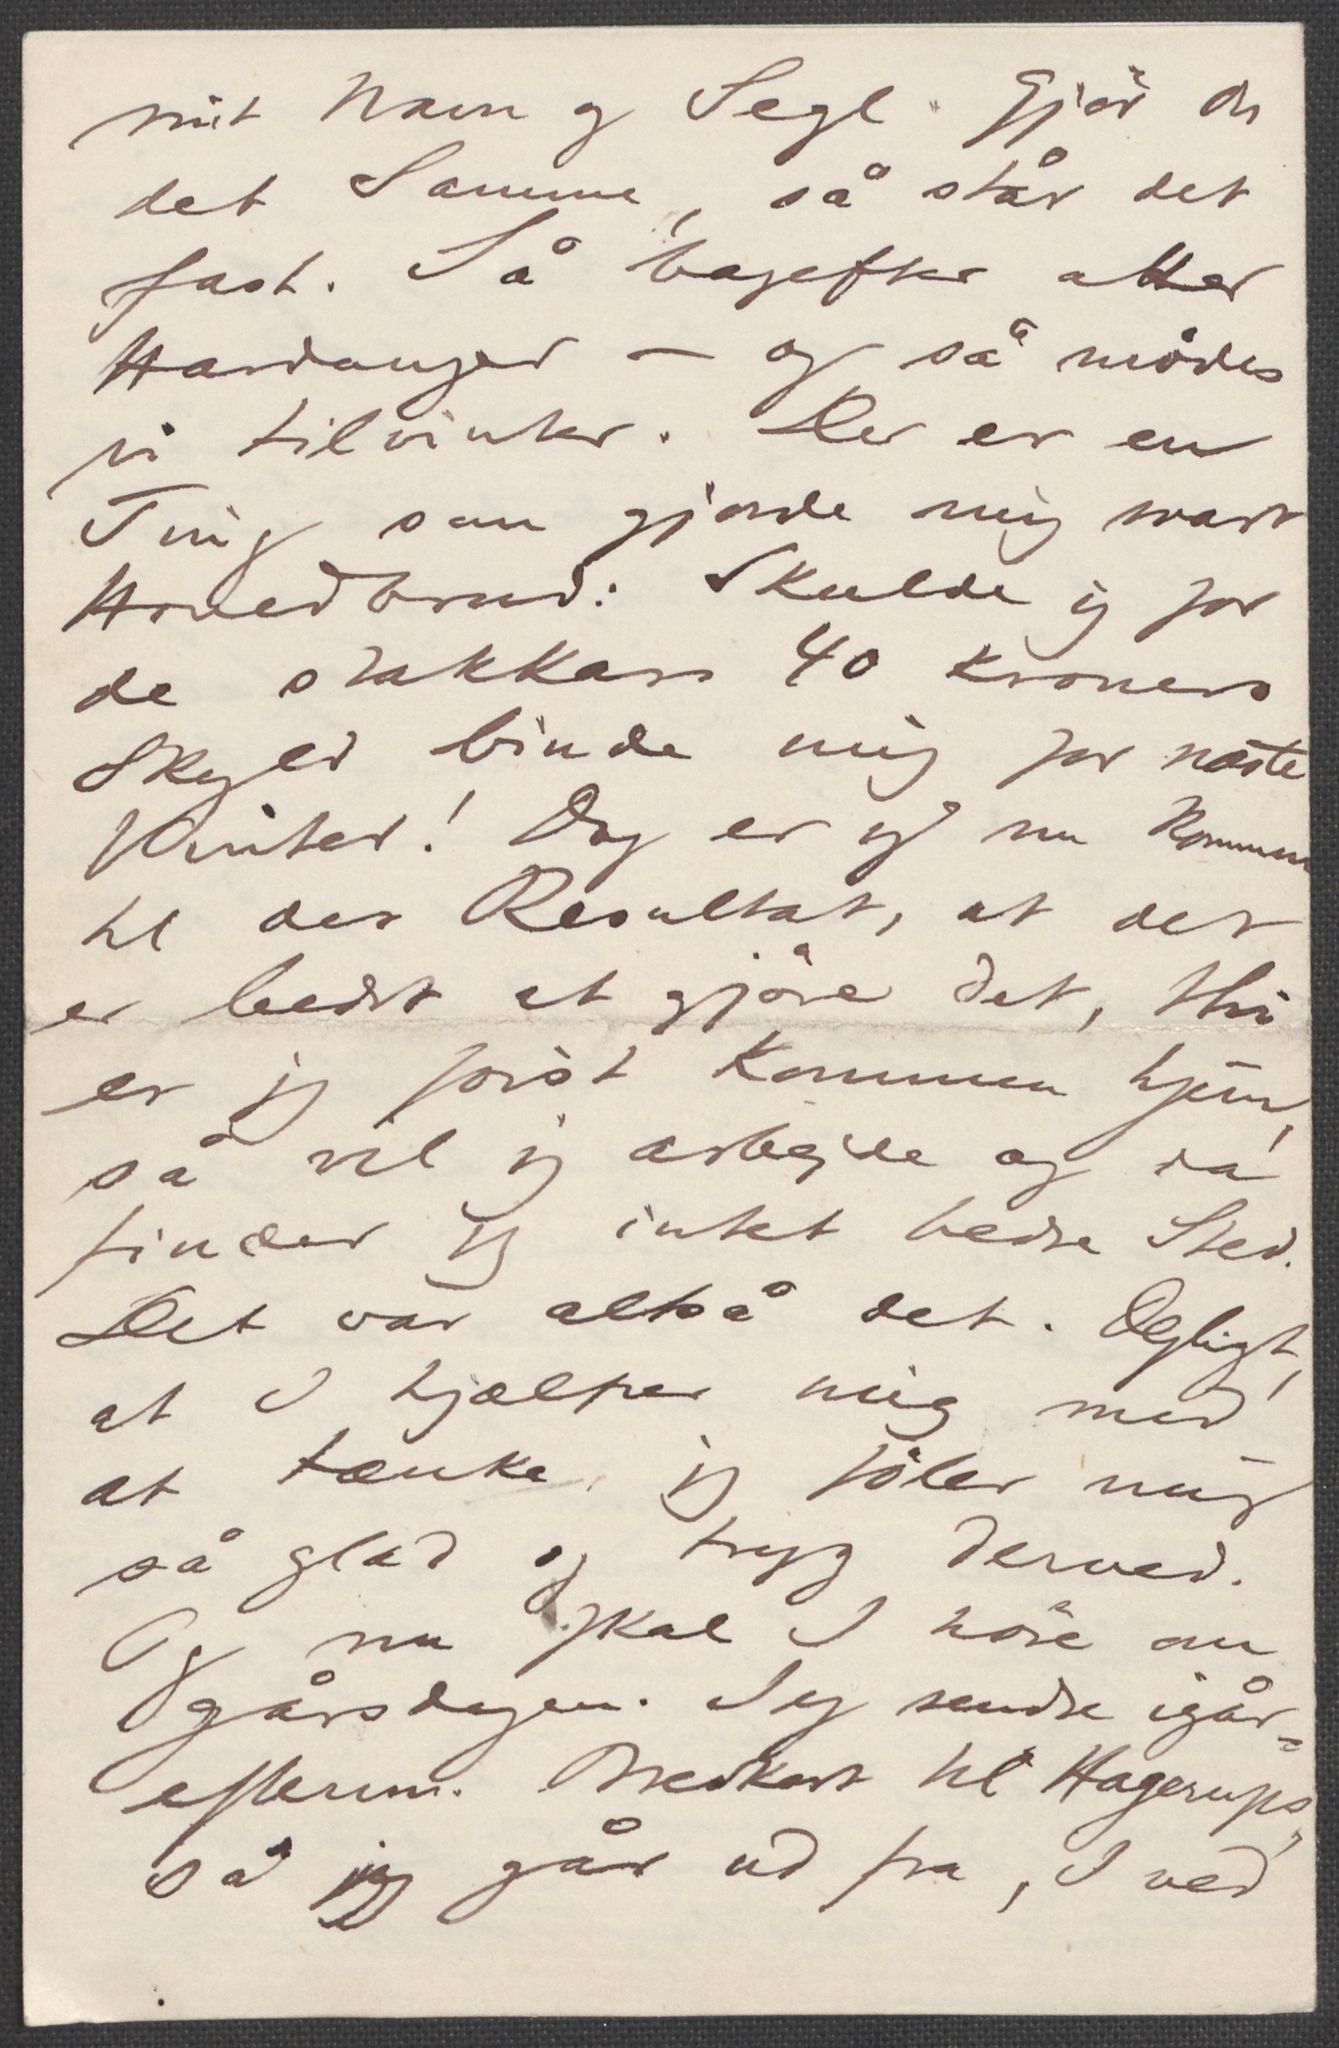 mit Navn og Segl. Gjør du
det Samme, så står det
fast. Så bagefter atter
Hardanger – og så mødes
vi tilvinter. Der er en
Ting som gjorde mig svart
Hovedbrud: Skulde jeg for
de stakkars 40 Kroners
Skyld binde mig for næste
Vinter! Dog er jeg nu kommen
til det Resultat, at det
er bedst at gjøre det, thi
er jeg først kommen hjem,
så vil jeg arbejde og da
finder jeg intet bedre Sted.
Det var altså det. Dejligt,
at I hjælper mig med
at tænke, jeg føler mig
så glad og tryg derved.
Og nu skal I høre om
gårsdagen. Jeg sendte igår=
efterm. Brevkort til Hagerups,
så jeg går ud fra, I ved